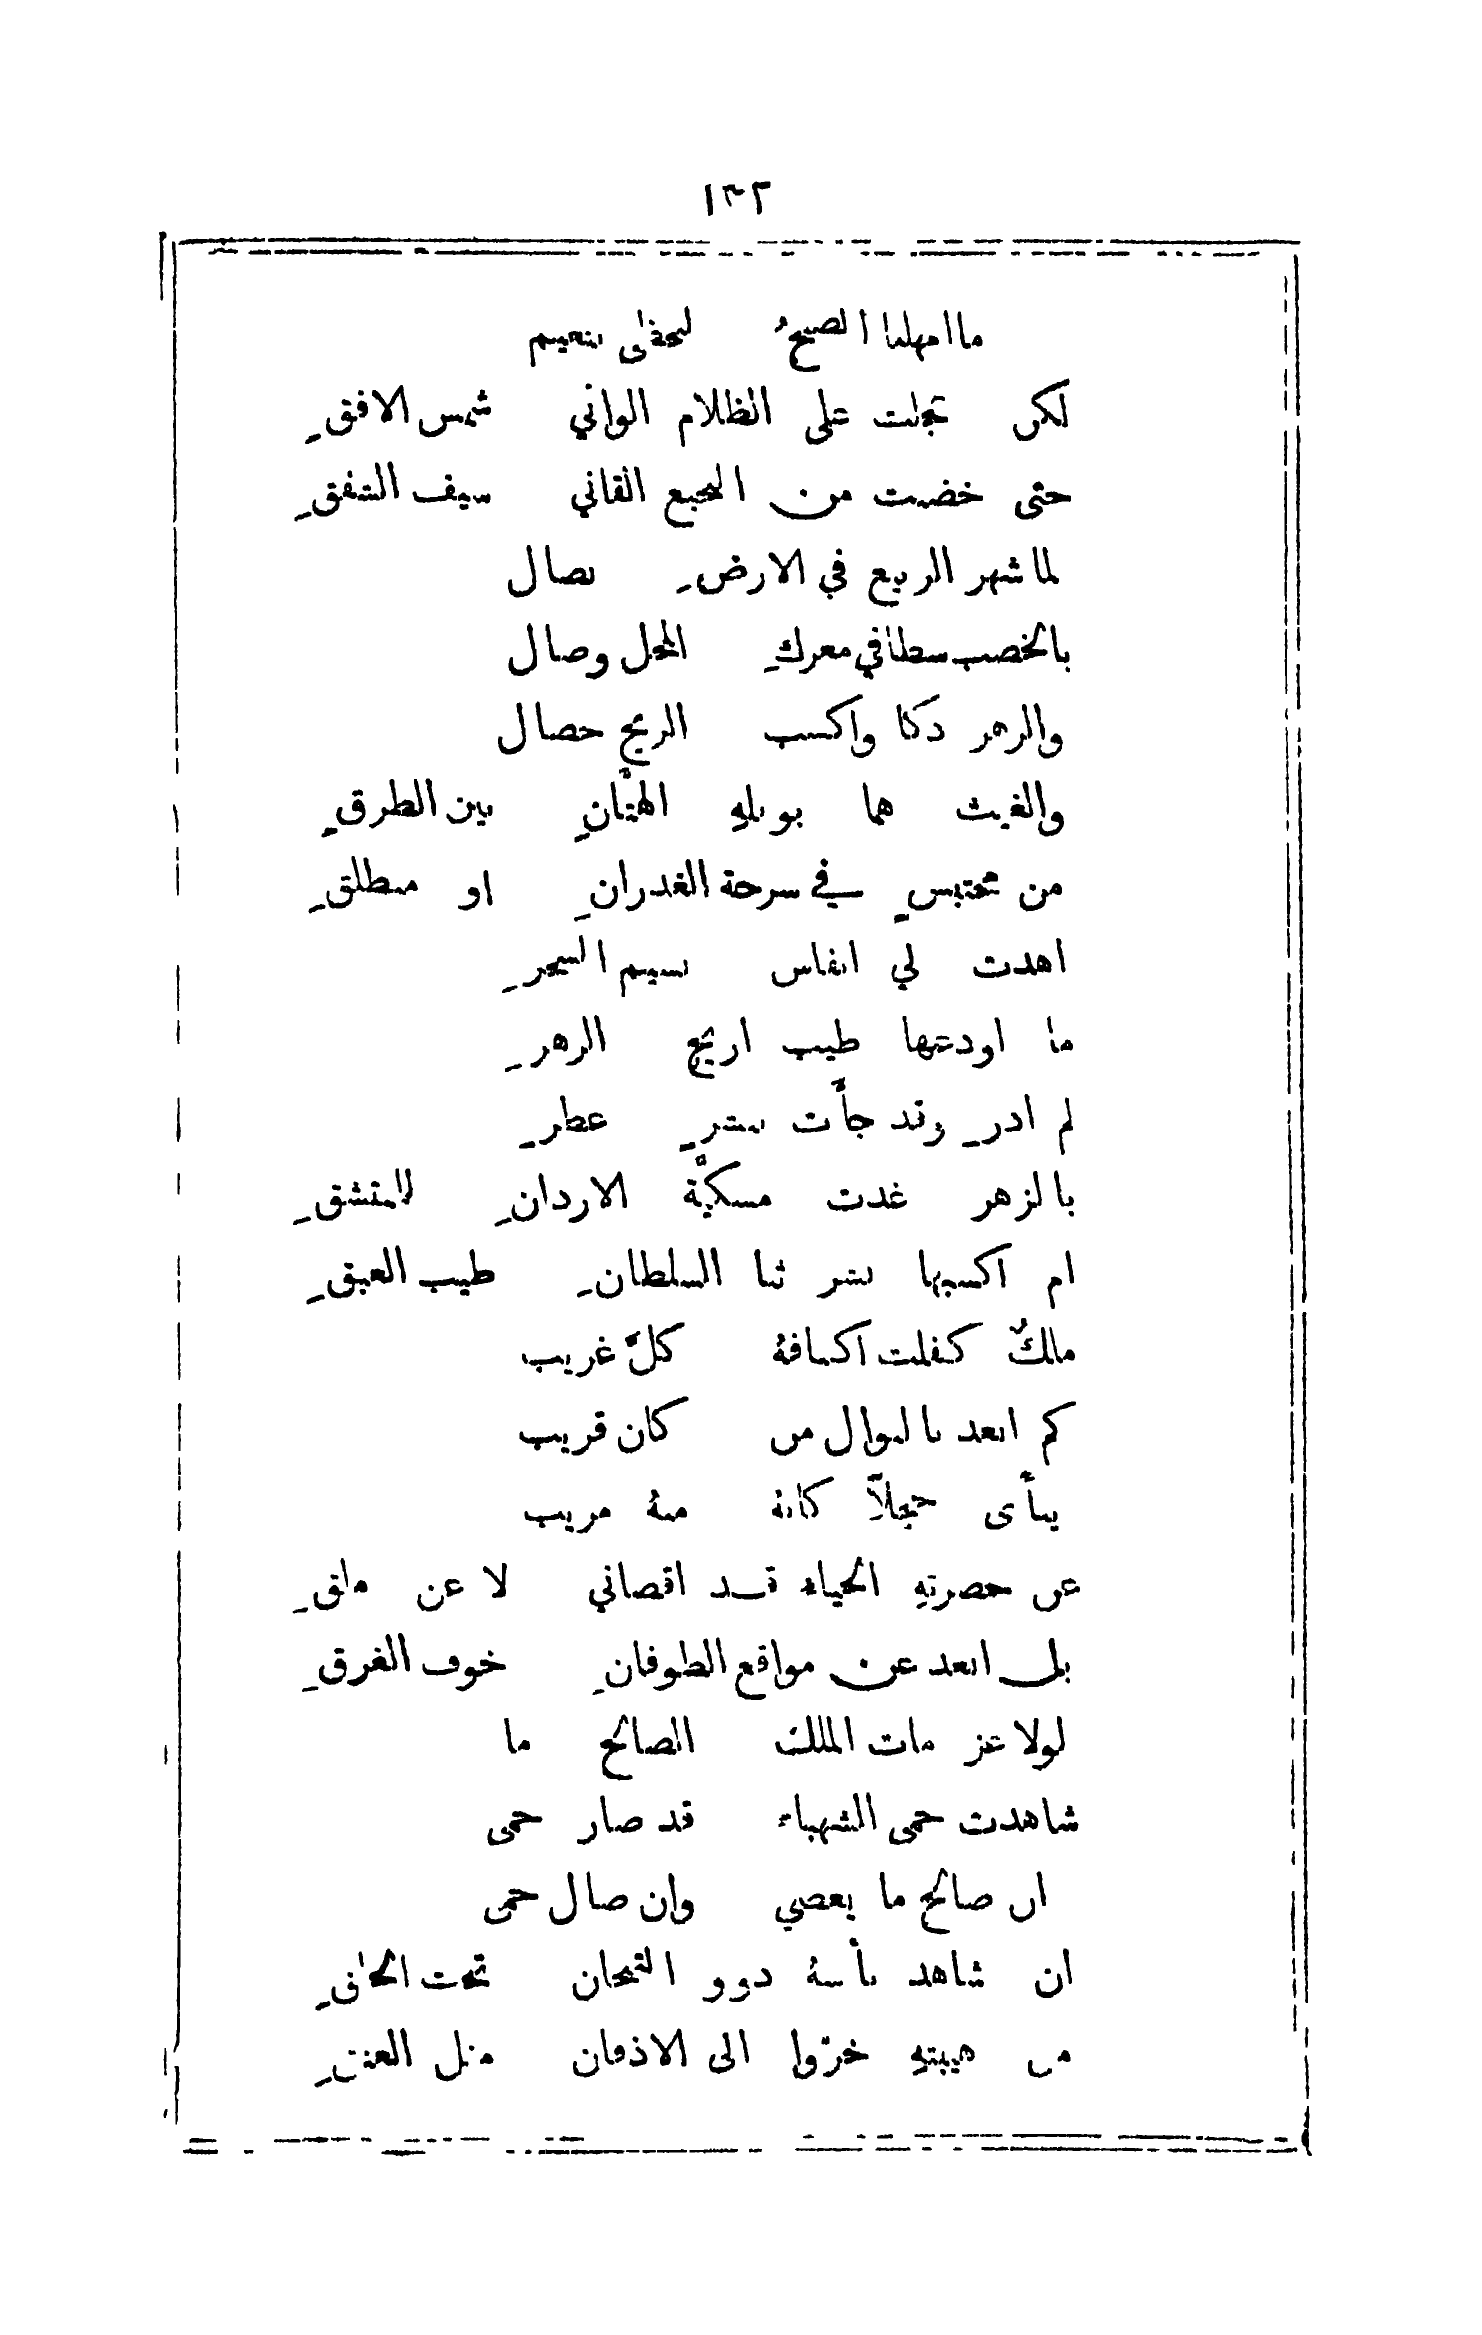 ١٣٢
ما امهلنا الصبحُ لنحظى بنعيم
لكن تجلت على الظلام الواني شمس الافقِ
حتى خضبت من النجيع القاني سيف الشفقِ
لما شهر الربيع في الارضِ نصال
بالخصب سطا في معركِ المحل وصال
والزهر ذكا واكسب الريح خصال
والغيث هما بوبلهِ الهتَّانِ بين الطرقِ
من محتبسٍ في سرحة الغدرانِ او منطلقِ
اهدت لي انفاس نسيم السحرِ
ما اودعها طيب اريج الزهرِ
لم ادرِ وقد جأَت بنشرٍ عطرِ
بالزهر غدت مسكيَّة الاردانِ للمنتشقِ
ام اكسبها نشر ثنا السلطانِ طيب العبقِ
ملكٌ كفلت اكنافهُ كلَّ غريب
كم ابعد بالنوال من كان قريب
ينأَى خجلاً كانهُ منهُ مريب
عن حضرتهِ الحياء قد اقصاني لا عن ملقِ
بل ابعد عن مواقع الطوفانِ خوف الغرقِ
لولا عزمات الملك الصالح ما
شاهدت حمى الشهباء قد صار حمى
ان صالح ما يعصي وان صال حمى
ان شاهد بأسهُ ذوو التيجان تحت الحلقِ
من هيبتهِ خرّوا الى الاذقان ميل العنقِ